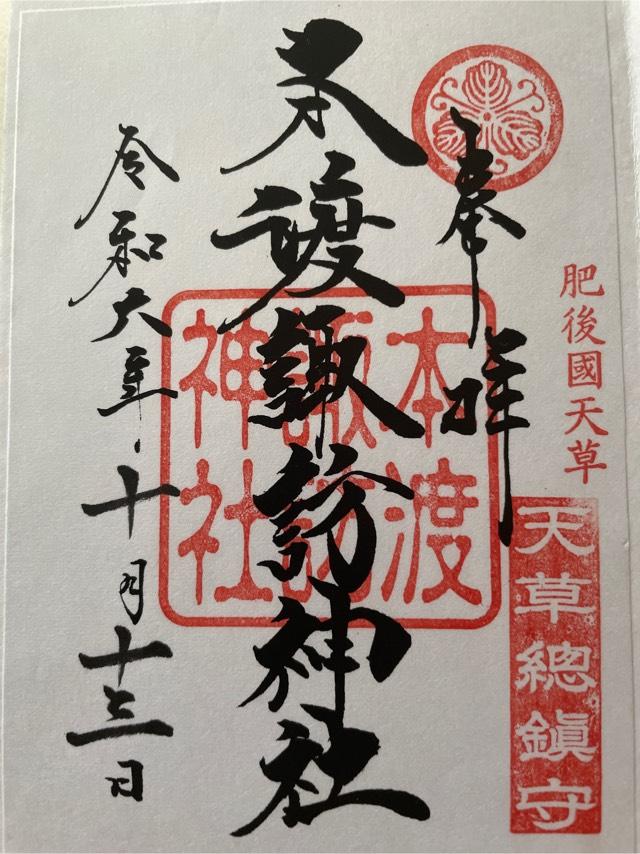 奉拝
肥後國天草
天草總鎮守
本渡諏訪神社
本渡
諏訪
神社
令和六年十月十三日